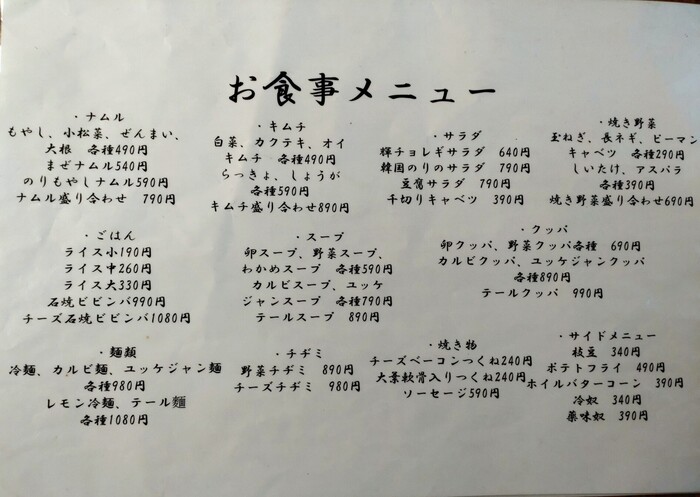 お食事メニュー
・ナムル
もやし、小松菜、ぜんまい、
大根 各種490円
まぜナムル540円
のりもやしナムル590円
ナムル盛り合わせ 790円
・キムチ
白菜、カクテキ、オイ
キムチ 各種490円
らっきょ、しょうが
各種590円
キムチ盛り合わせ890円
・サラダ
輝チョレギサラダ 640円
韓国のりのサラダ 790円
豆腐サラダ 790円
千切りキャベツ 390円
・焼き野菜
玉ねぎ、長ネギ、ピーマン
キャベツ 各種290円
しいたけ、アスパラ
各種390円
焼き野菜盛り合わせ690円
・ごはん
ライス小190円
ライス中260円
ライス大330円
石焼ビビンバ990円
チーズ石焼ビビンバ1080円
・スープ
卵スープ、野菜スープ、
わかめスープ 各種590円
カルビスープ、ユッケ
ジャンスープ 各種790円
テールスープ 890円
・クッパ
卵クッパ、野菜クッパ各種 690円
カルビクッパ、ユッケジャンクッパ
各種890円
テールクッパ 990円
・麺類
冷麺、カルビ麺、ユッケジャン麺
各種980円
レモン冷麺、テール麺
各種1080円
・チヂミ
野菜チヂミ 890円
チーズチヂミ 980円
・焼き物
チーズベーコンつくね240円
大葉軟骨入りつくね240円
ソーセージ590円
・サイドメニュー
枝豆 340円
ポテトフライ 490円
ホイルバターコーン 390円
冷奴 340円
薬味奴 390円